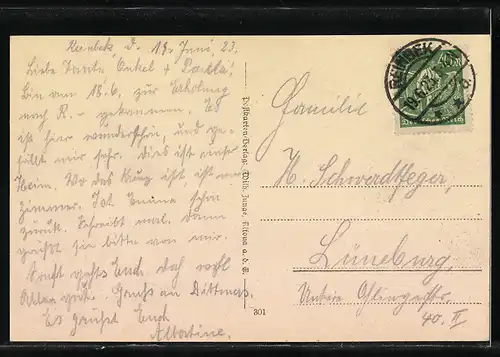 Reinbek, d. 19. Juni, 23.
Liebe Tante, Onkel +
Bin am 18.6. zur Erholung
nach R. gekommen. Es
ist hier wunderschön, und ge-
fällt mir sehr. Dies ist unser
Heim. Wo das Kreuz ist, ist mein
Zimmer. Ist schon
zurück. Schreibt mal. Dann
grüßt sie bitte von mir.
Sonst geht's Euch doch wohl
Gruß an Dittmers.
Es grüßt Euch
Albertine.
Postkarten-Verlag, Wilh. Junge, Altona a. d. E.
301
REINBEK
Familie
H. Schwerdtfeger,
Lüneburg,
Untere
40. II